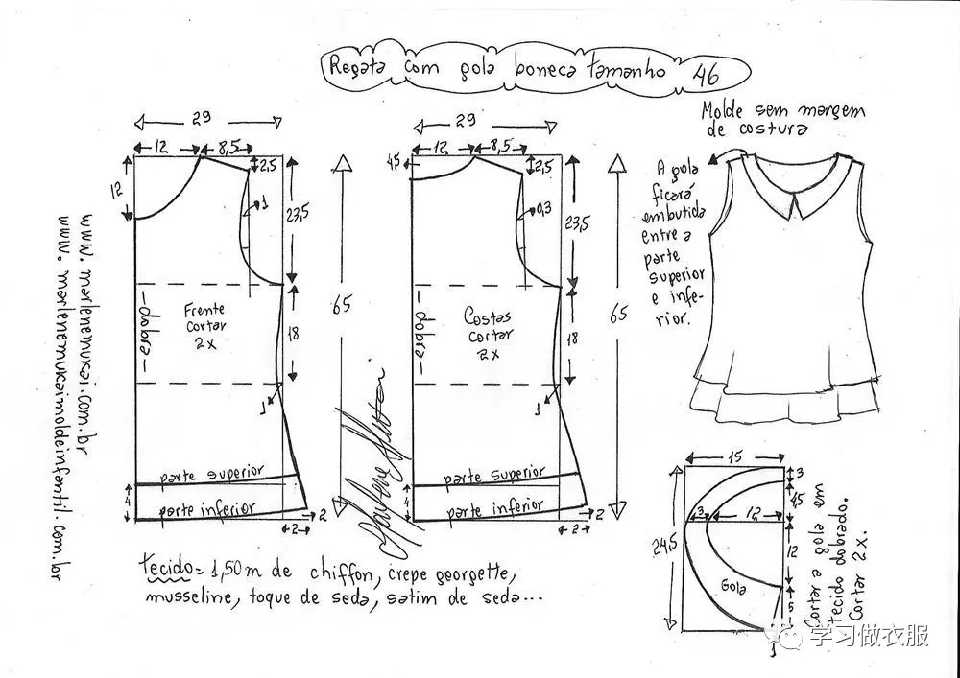 Regata com gola boneca tamanho 46
Molde sem margem
de costura
29
12
8,5
2,5
12
1
23,5
Frente
cortar
2x
-dobra-
18
1
65
parte superior
parte inferior
4
2
2
29
12
8,5
4,5
2,5
0,3
23,5
Costas
cortar
2x
-dobra-
18
1
65
parte superior
parte inferior
4
2
2
A gola
ficará
embutida
entre a
parte
superior
e infe-
rior.
www.marlenemukai.com.br
www.marlenemukaimoldeinfantil.com.br
15
3
4,5
3
12
24,5
12
Gola
5
1
Cortar a gola em
tecido dobrado.
Cortar 2x.
tecido= 1,50m de chiffon, crepe georgette,
musseline, toque de seda, satim de seda...
学习做衣服